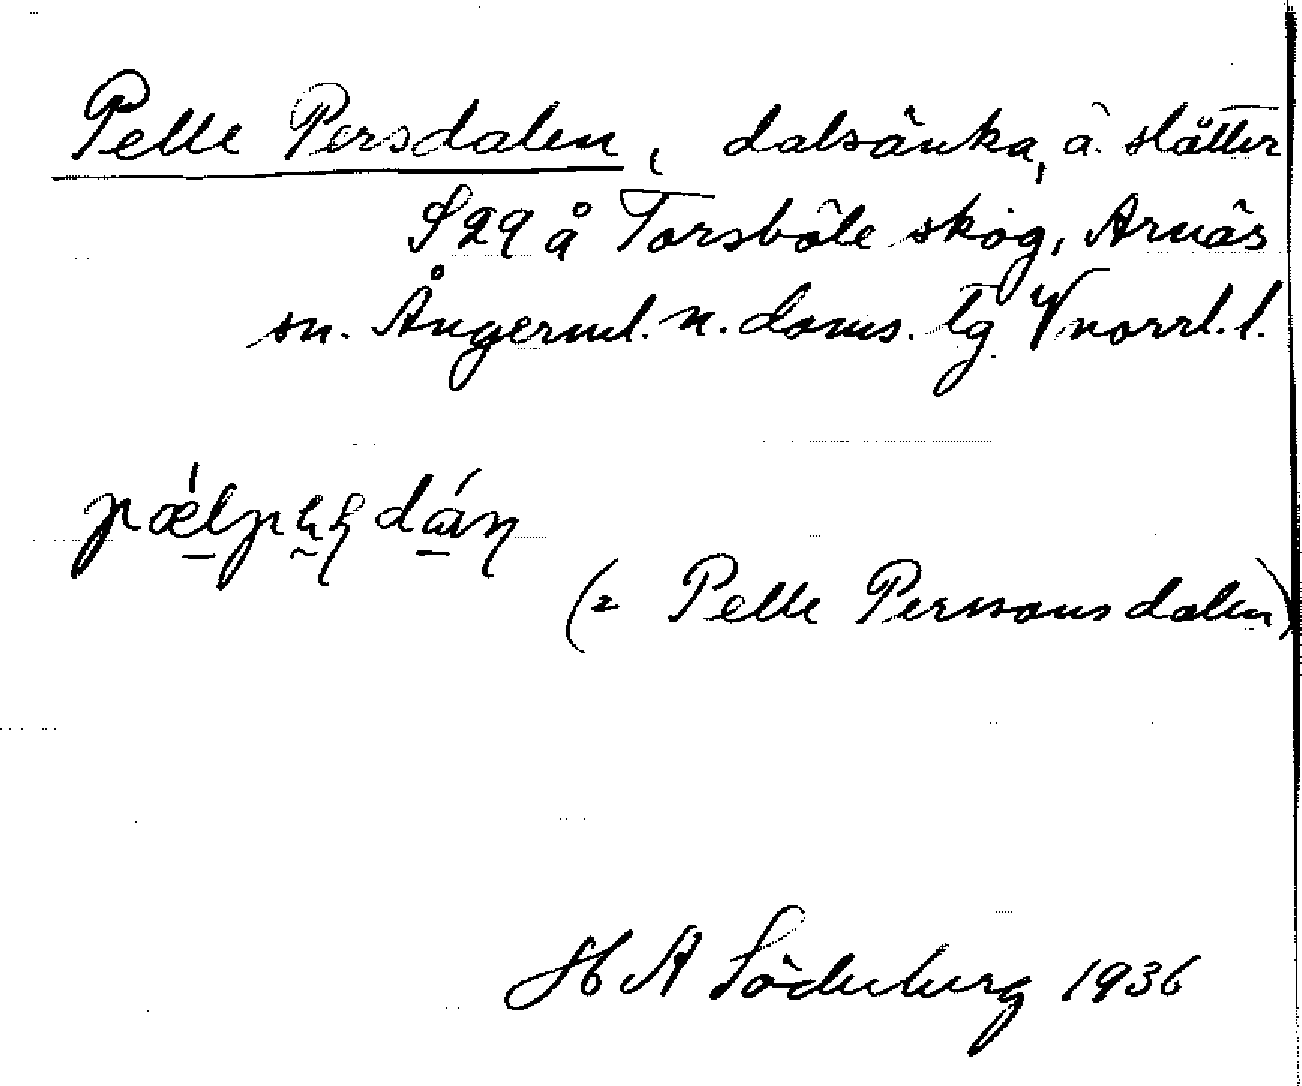 Pelle Persdalen, dalsänka, ä. slåtter
S 29 å Torsböle skog, Arnäs
sn. Ångerml. n. doms. tg V norrl. l.
(= Pelle Perssonsdalen)
H A Söderberg 1936